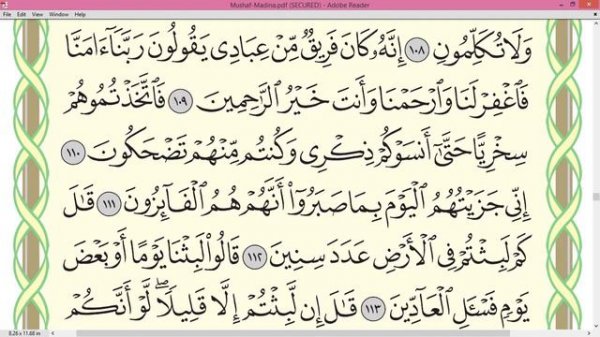 Mushaf-Madina.pdf (SECURED) - Adobe Reader
File Edit View Window Help
وَلَا تُكَلِّمُونِ ١٠٨ إِنَّهُۥ كَانَ فَرِيقٌ مِّنْ عِبَادِى يَقُولُونَ رَبَّنَآ ءَامَنَّا
فَٱغْفِرْ لَنَا وَٱرْحَمْنَا وَأَنتَ خَيْرُ ٱلرَّٰحِمِينَ ١٠٩ فَٱتَّخَذْتُمُوهُمْ
سِخْرِيًّا حَتَّىٰٓ أَنسَوْكُمْ ذِكْرِى وَكُنتُم مِّنْهُمْ تَضْحَكُونَ ١١٠
إِنِّى جَزَيْتُهُمُ ٱلْيَوْمَ بِمَا صَبَرُوٓا۟ أَنَّهُمْ هُمُ ٱلْفَآئِزُونَ ١١١ قَٰلَ
كَمْ لَبِثْتُمْ فِى ٱلْأَرْضِ عَدَدَ سِنِينَ ١١٢ قَالُوا۟ لَبِثْنَا يَوْمًا أَوْ بَعْضَ
يَوْمٍ فَسْـَٔلِ ٱلْعَآدِّينَ ١١٣ قَٰلَ إِن لَّبِثْتُمْ إِلَّا قَلِيلًا ۖ لَّوْ أَنَّكُمْ
8.26 x 11.68 in